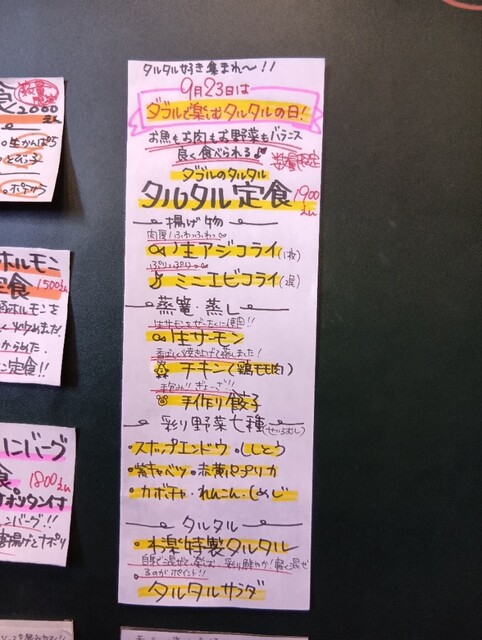 タルタル好き集まれ〜!!
9月23日は
ダブルで楽しむタルタルの日!
お魚もお肉もお野菜もバランス
良く食べられる♪
数量限定
ダブルのタルタル
タルタル定食 1900えん
揚げ物
肉厚!ふわっふわっ
生アジフライ(1枚)
ぷりっぷりっ
ミニエビフライ(2尾)
蒸篭・蒸し
生サーモンをぜーたくに使用!!
生サーモン
香ばしく焼き上げて蒸しました!
チキン(鶏モモ肉)
手包み!!ぎょーざ!!
手作り餃子
彩り野菜七種(せいろむし)
・スナップエンドウ・ししとう
・紫キャベツ・赤黄パプリカ
・カボチャ・れんこん・しめじ
タルタル
特製タルタル
ポイント!!
タルタルサラダ
食
数量限定
2000えん
ホルモン
定食 1500えん
ホルモンを
ン定食!!
ハンバーグ
食。1800えん
ナポリタン付
ンバーグ!!
唐揚げとナポリ